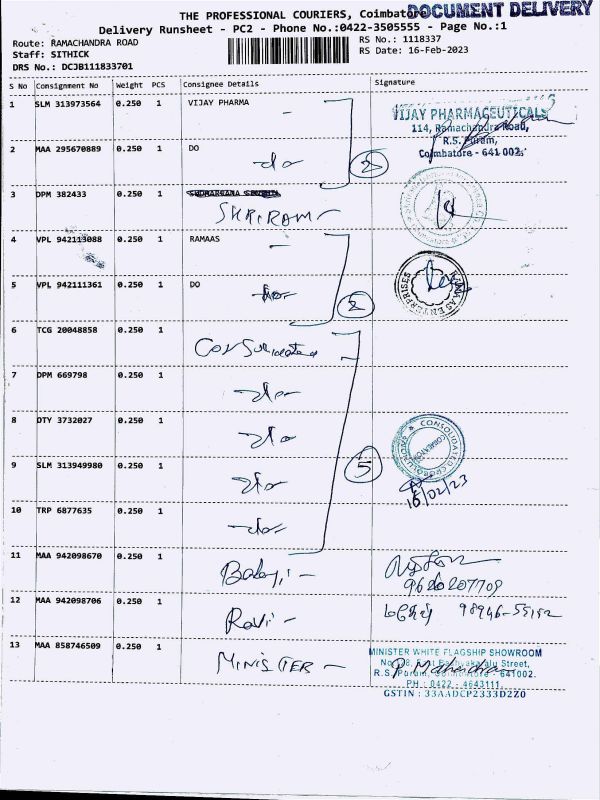 THE PROFESSIONAL COURIERS, Coimbatore
DOCUMENT DELIVERY
Delivery Runsheet - PC2 - Phone No.:0422-3505555 - Page No.:1
Route: RAMACHANDRA ROAD
RS No.: 1118337
Staff: SITHICK
RS Date: 16-Feb-2023
DRS No.: DCJB111833701
S No Consignment No Weight PCS Consignee Details Signature
1 SLM 313973564 0.250 1 VIJAY PHARMA
VIJAY PHARMACEUTICALS
114, Ramachandra Road,
R.S. Puram,
Coimbatore - 641 002.
2 MAA 295670889 0.250 1 DO
do
2
3 DPM 382433 0.250 1
SHRIRAM
4 VPL 942113088 0.250 1 RAMAAS
5 VPL 942111361 0.250 1 DO
do
2
ENTERPRISES
6 TCG 20048858 0.250 1
Consolidated
7 DPM 669798 0.250 1
do
8 DTY 3732027 0.250 1
do
CONSOLIDATED
9 SLM 313949980 0.250 1
do
5
16/02/23
10 TRP 6877635 0.250 1
do
11 MAA 942098670 0.250 1
Balaji
9620207709
12 MAA 942098706 0.250 1
Ravi
13 MAA 858746509 0.250 1
MINISTER
MINISTER WHITE FLAGSHIP SHOWROOM
Street,
R.S. Puram, Coimbatore - 641002.
PH : 0422 - 4643111,
GSTIN : 33AADCP2333D2Z0